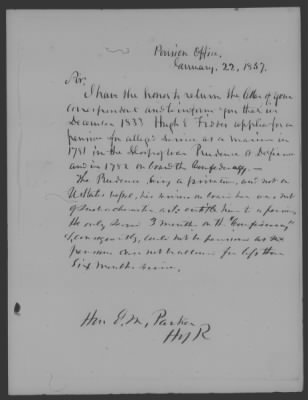 Pension Office,
January, 22, 1857.
Sir,
I have the honor to return the letter of your
correspondent and to inform you that in
December 1833 Hugh E Fiddis applied for a
pension for alleged service as a marine in
1781 in the Sloop of war Prudence &
and in 1782 on board the Confederacy. —
The Prudence being a privateer, and not a
U States vessel, his service on board her was not
of such a character as to entitle him to a pension,
He only served 3 months on the "Confederacy"
& consequently, could not be pensioned as no
pensions are allowed for less than
Six months service.
Hon E. M, Parker
Ho R